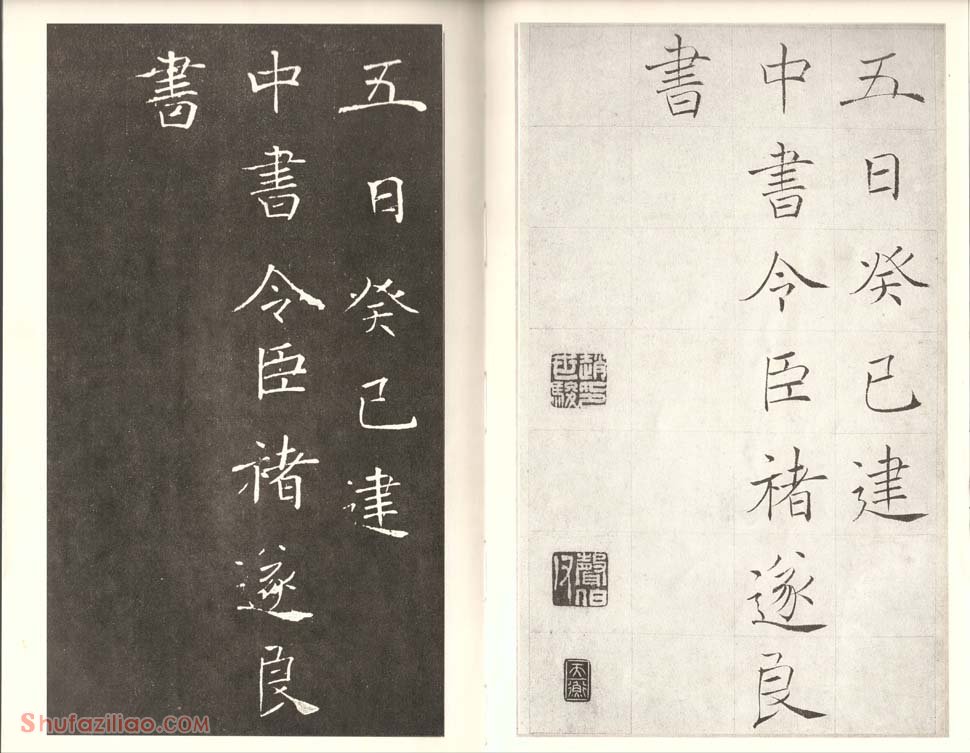 五日癸巳建
中書令臣褚遂良
書
趙印世駿
聲伯
五日癸巳建
中書令臣褚遂良
書
Shufaziliao.COM